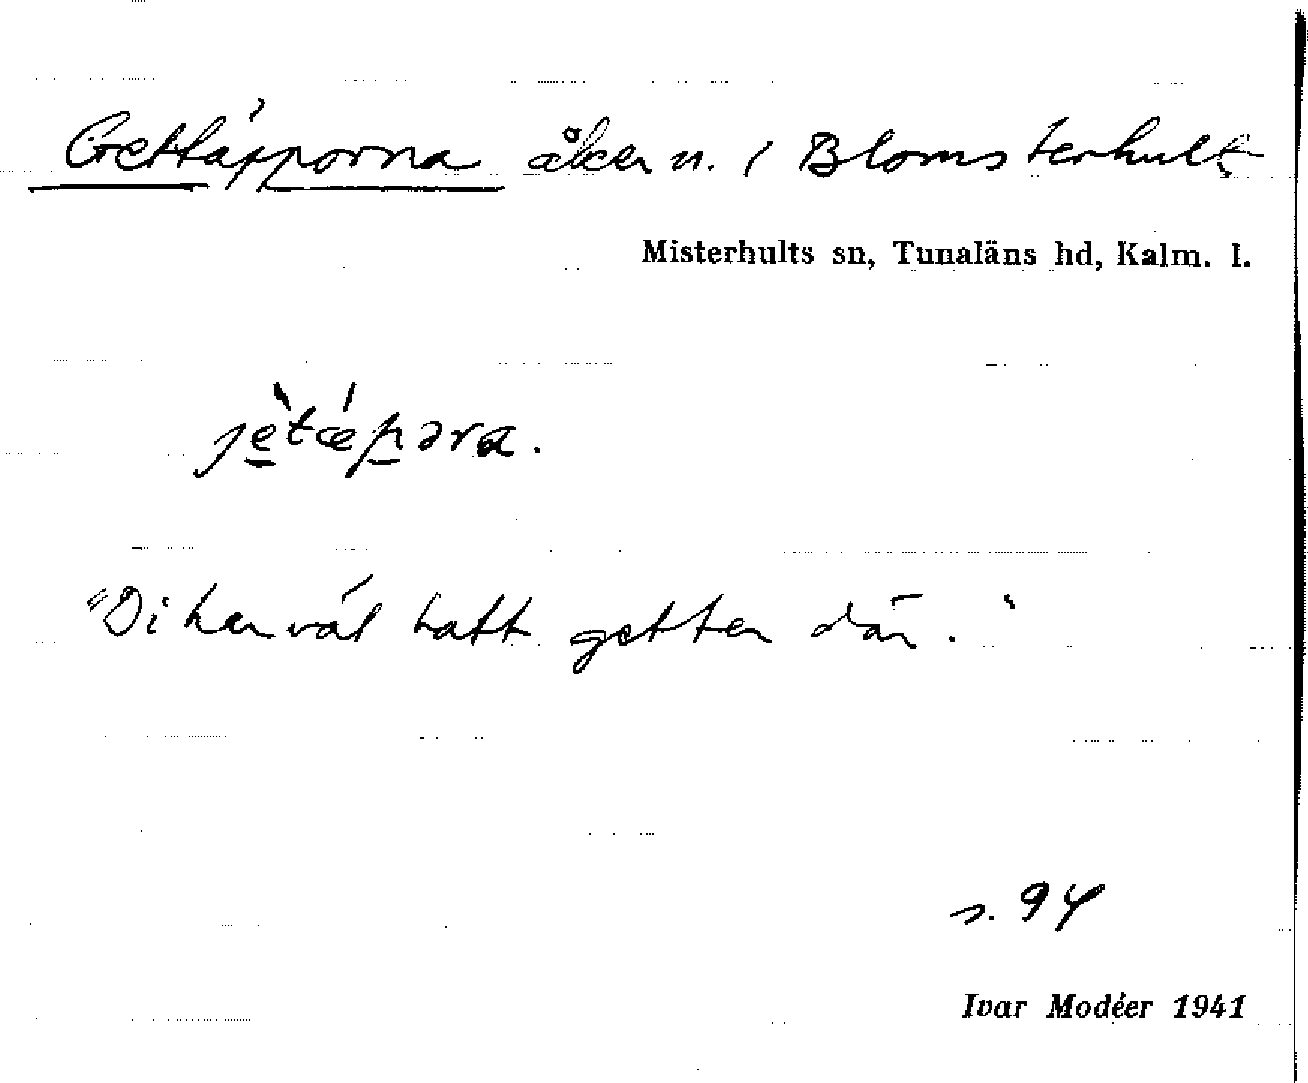 Gettäpporna åker n. i Blomsterhult
Misterhults sn, Tunaläns hd, Kalm. l.
jètǽpəra.
"Di har väl haft getter där."
s. 94
Ivar Modéer 1941